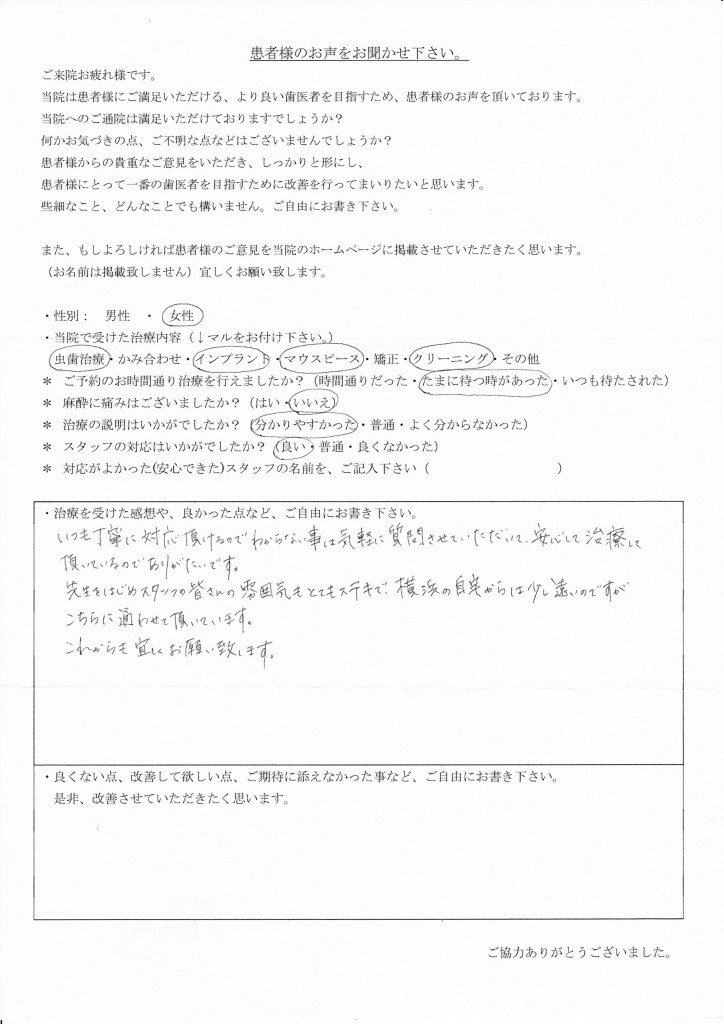 患者様のお声をお聞かせ下さい。
ご来院お疲れ様です。
当院は患者様にご満足いただける、より良い歯医者を目指すため、患者様のお声を頂いております。
当院へのご通院は満足いただけておりますでしょうか？
何かお気づきの点、ご不明な点などはございませんでしょうか？
患者様からの貴重なご意見をいただき、しっかりと形にし、
患者様にとって一番の歯医者を目指すために改善を行ってまいりたいと思います。
些細なこと、どんなことでも構いません。ご自由にお書き下さい。
また、もしよろしければ患者様のご意見を当院のホームページに掲載させていただきたく思います。
（お名前は掲載致しません）宜しくお願い致します。
・性別：　男性　・　女性
・当院で受けた治療内容（↓マルをお付け下さい。）
虫歯治療・かみ合わせ・インプラント・マウスピース・矯正・クリーニング・その他
＊　ご予約のお時間通り治療を行えましたか？（時間通りだった・たまに待つ時があった・いつも待たされた）
＊　麻酔に痛みはございましたか？（はい・いいえ）
＊　治療の説明はいかがでしたか？（分かりやすかった・普通・よく分からなかった）
＊　スタッフの対応はいかがでしたか？（良い・普通・良くなかった）
＊　対応がよかった(安心できた)スタッフの名前を、ご記入下さい（　　　　　　　　　）
・治療を受けた感想や、良かった点など、ご自由にお書き下さい。
いつも丁寧に対応頂けるのでわからない事は気軽に質問させていただいて、安心して治療して
頂いているのでありがたいです。
先生をはじめスタッフの皆さんの雰囲気もとてもステキで、横浜の自宅からは少し遠いのですが
こちらに通わせて頂いています。
これからも宜しくお願い致します。
・良くない点、改善して欲しい点、ご期待に添えなかった事など、ご自由にお書き下さい。
是非、改善させていただきたく思います。
ご協力ありがとうございました。